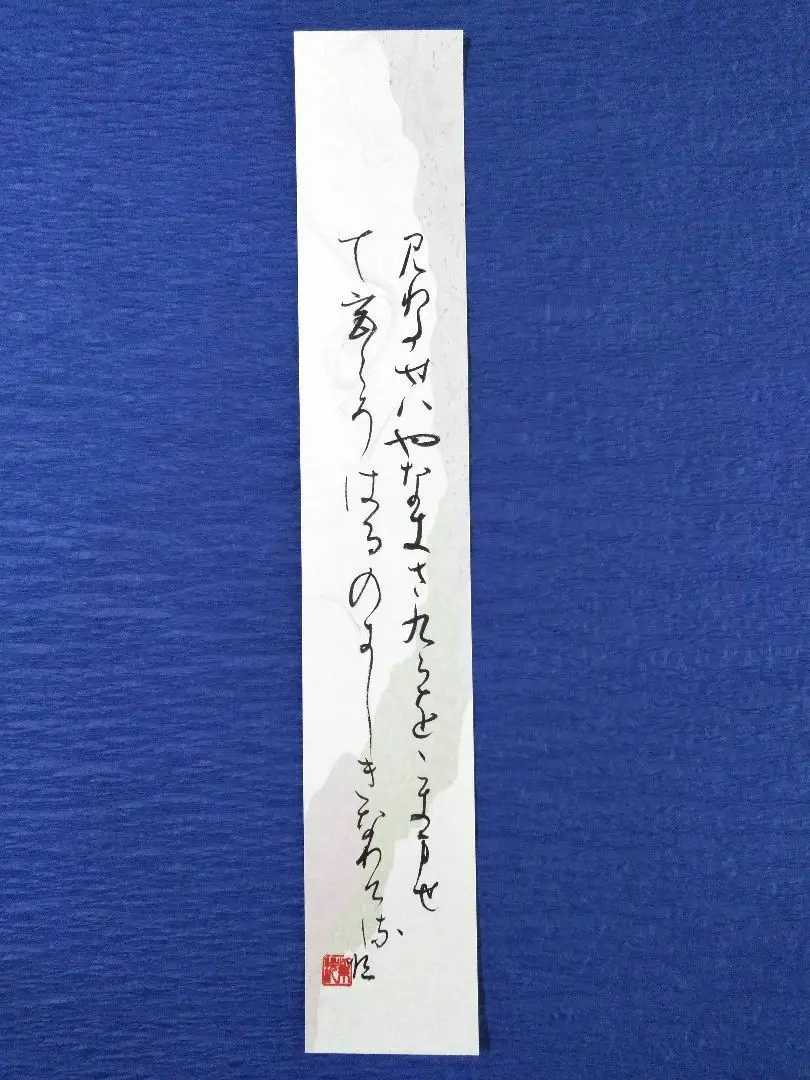 見わたせハやなきさくらをこきませ
て宮こそはるのにしきなりける